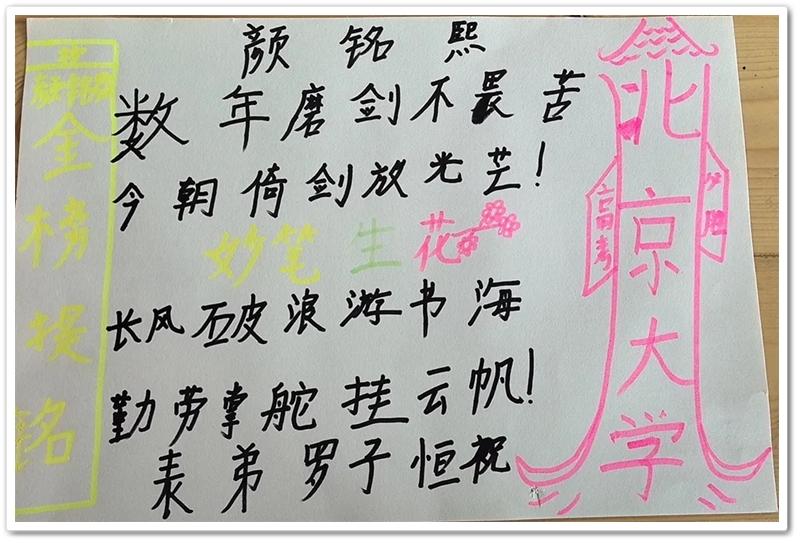 颜铭熙
数年磨剑不畏苦
今朝倚剑放光芒!
妙笔生花
长风破浪游书海
勤劳掌舵挂云帆!
表弟罗子恒祝
金榜提铭
北京大学